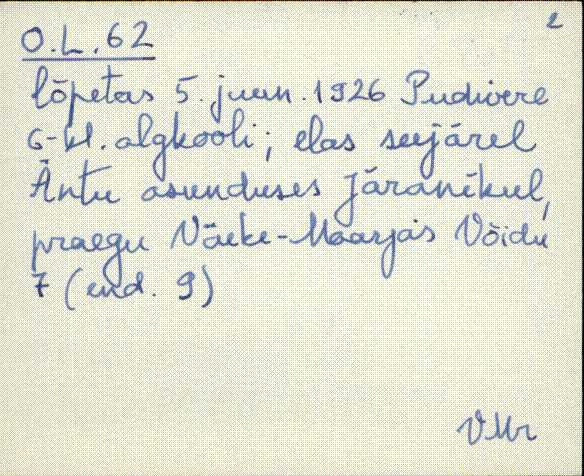 2
O.L.62
lõpetas 5. juun. 1926 Pudivere
6-kl. algkooli; elas seejärel
Äntu asunduses Järanikul,
praegu Väike-Maarjas Võidu
7 (end. 9)
VMr